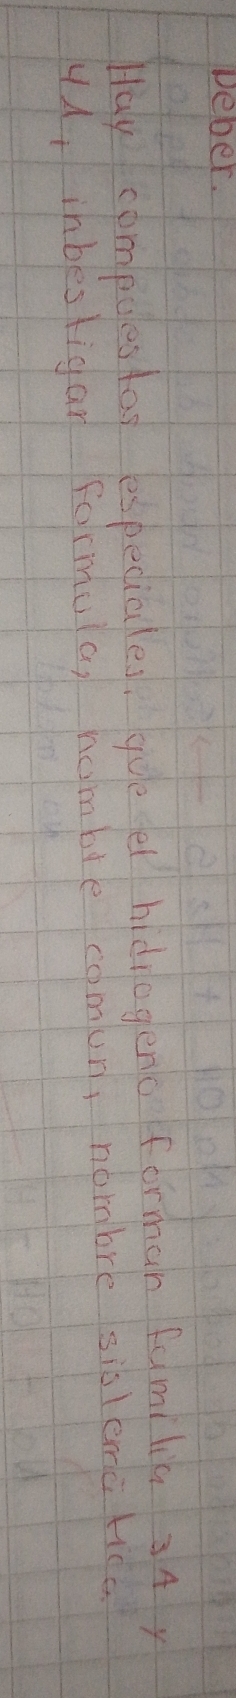 Deber.
Hay compuestos especiales, que el hidrogeno forman familia 3A y
4A, inbestigar formula, nombre comun, nombre sistemática.